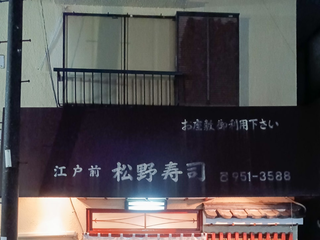 お座敷御利用下さい
江戸前 松野寿司 ☎951-3588